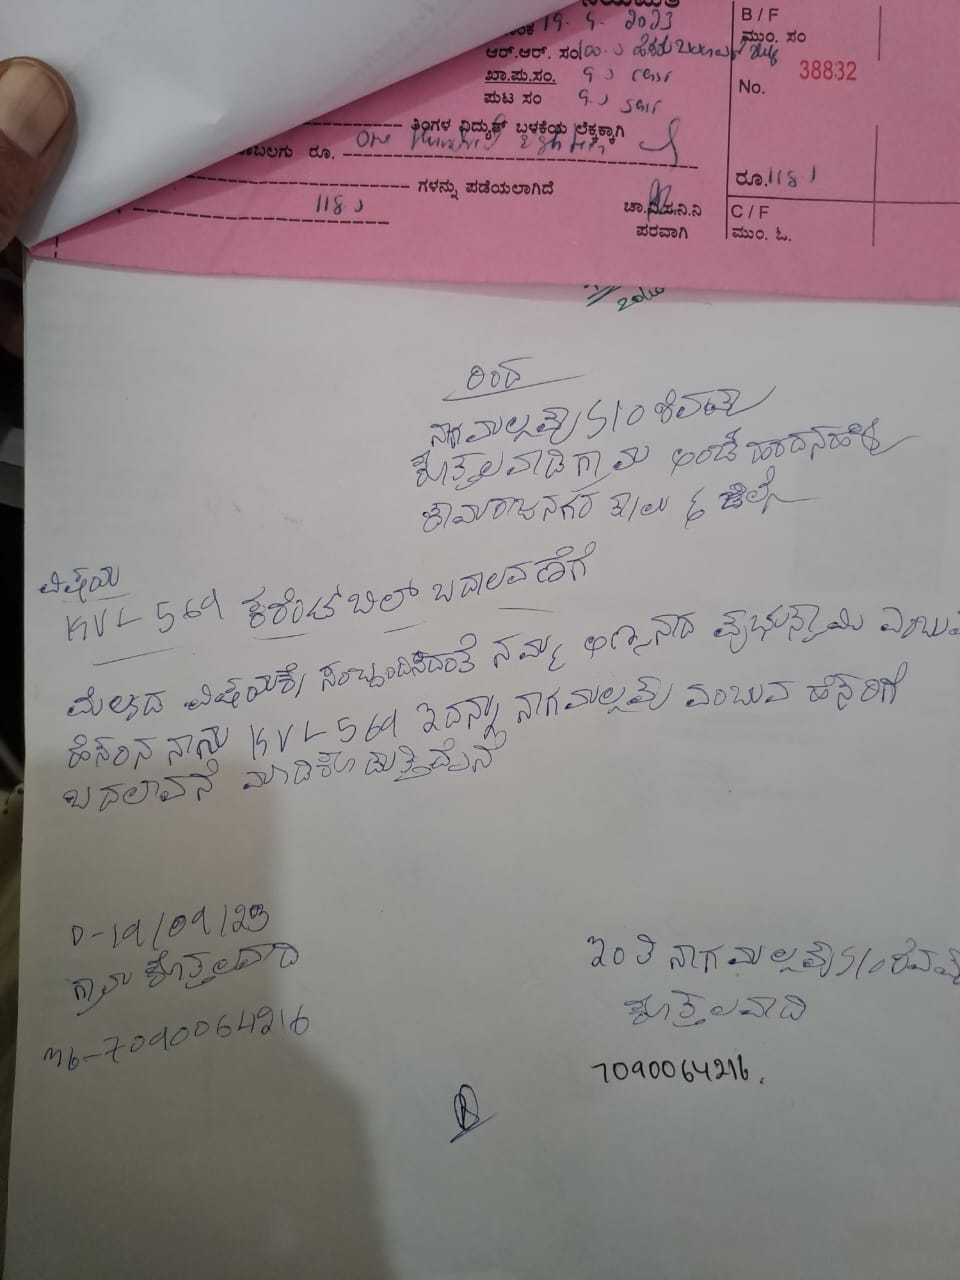 19.9.2023
B / F
ಆರ್.ಆರ್. ಸಂ
ಮುಂ. ಸಂ
ಖಾ.ಪು.ಸಂ.
No. 38832
ಪುಟ ಸಂ
ತಿಂಗಳ ವಿದ್ಯುತ್ ಬಳಕೆಯ ಲೆಕ್ಕಕ್ಕಾಗಿ
ರೂ. One
ಗಳನ್ನು ಪಡೆಯಲಾಗಿದೆ
ರೂ.
C / F
ಪರವಾಗಿ
ಮುಂ. ಓ.
ರಿಂದ
ನಾಗಮಲ್ಲಪ್ಪ S/O ಶಿವಪ್ಪ
ಕೊತ್ತಲವಾಡಿ ಗ್ರಾಮ ಅಂಚೆ ಹರದನಹಳ್ಳಿ
ಚಾಮರಾಜನಗರ ತಾಲು & ಜಿಲ್ಲೆ
ವಿಷಯ
KVL-569 ಕರೆಂಟ್ ಬಿಲ್ ಬದಾಲವಣೆಗೆ
ಮೆಲ್ಕಡ ವಿಷಯಕ್ಕೆ ಸಂಬ್ಬಂದಿಸಿದಂತೆ ನಮ್ಮ ಅಣ್ಣನಾದ ಪ್ರಭುಸ್ವಾಮಿ ಎಂಬುವ
ಹೆಸರಿನ ನಾನ್ನು KVL-569 ಇದನ್ನು ನಾಗಮಲ್ಲಪ್ಪ ಎಂಬುವ ಹೆಸರಿಗೆ
ಬದಲಾವನೆ ಮಾಡಿಕೂಡುತ್ತಿದ್ದೆನೆ
D-19/09/23
ಗ್ರಾಮ ಕೊತ್ತಲವಾಡಿ
mb-7090064216
ಇಂತಿ ನಾಗಮಲ್ಲಪ್ಪ S/O ಶಿವಪ್ಪ
ಕೊತ್ತಲವಾಡಿ
7090064216.